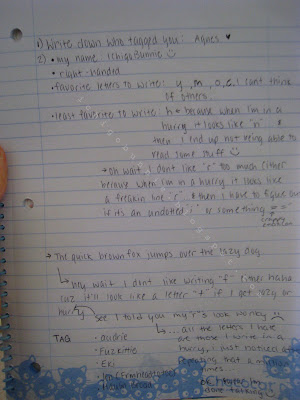 1) Write down who tagged you: Agnes ♥
2) • my name: IchigoBunnie ☺
• right-handed
• favorite letters to write: y, m, o, e. I cant think
of others.
• least favorite to write: h ← because when I'm in a
hurry it looks like "n" &
then I end up not being able to
read some stuff ☺
→ oh wait, I don't like "r" too much either
because when I'm in a hurry it looks like
a freakin line "r", & then I have to figure out
if its an undotted "i" or something
crappy
→ The quick brown fox jumps over the lazy dog.
↳ Omg wait. I dont like writing "f" either haha
cuz it'll look like a letter "t" if I get lazy or
hurry
see I told you my r's look wonky ☹
TAG
↳ ... all the letters I hate
• audrie
are those I write in a
• Fuzkittie
hurry, I just noticed I'm
• Eki
repeating that a million
times.